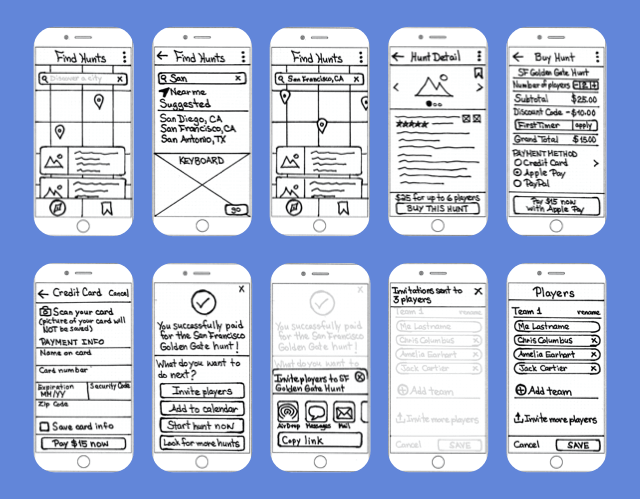 Find Hunts
Discover a city X
Find Hunts
San X
Near me
Suggested
San Diego, CA
San Francisco, CA
San Antonio, TX
KEYBOARD
go
Find Hunts
San Francisco, CA X
Hunt Detail
$25 for up to 6 players
BUY THIS HUNT
Buy Hunt
SF Golden Gate Hunt
Number of players
Subtotal $25.00
Discount Code -$10.00
First Timer apply
Grand Total $15.00
PAYMENT METHOD
Credit Card
Apple Pay
PayPal
Pay $15 now
with Apple Pay
Credit Card Cancel
Scan your card
(picture of your card will
NOT be saved)
PAYMENT INFO
Name on card
Card number
Expiration Security Code
MM/YY
Zip Code
Save card info
Pay $15 now
X
You successfully paid
for the San Francisco
Golden Gate hunt!
What do you want to
do next?
Invite players
Add to calendar
Start hunt now
Look for more hunts
X
You successfully paid
for the San Francisco
Golden Gate hunt!
What do you want to
Invite players to SF
Golden Gate Hunt
AirDrop Messages Mail
Copy link
Invitations sent to X
3 players
Team 1 rename
Me Lastname
Chris Columbus x
Amelia Earhart x
Jack Cartier x
Add team
Invite more players
Cancel SAVE
Players
Team 1 rename
Me Lastname
Chris Columbus x
Amelia Earhart x
Jack Cartier x
Add team
Invite more players
Cancel SAVE